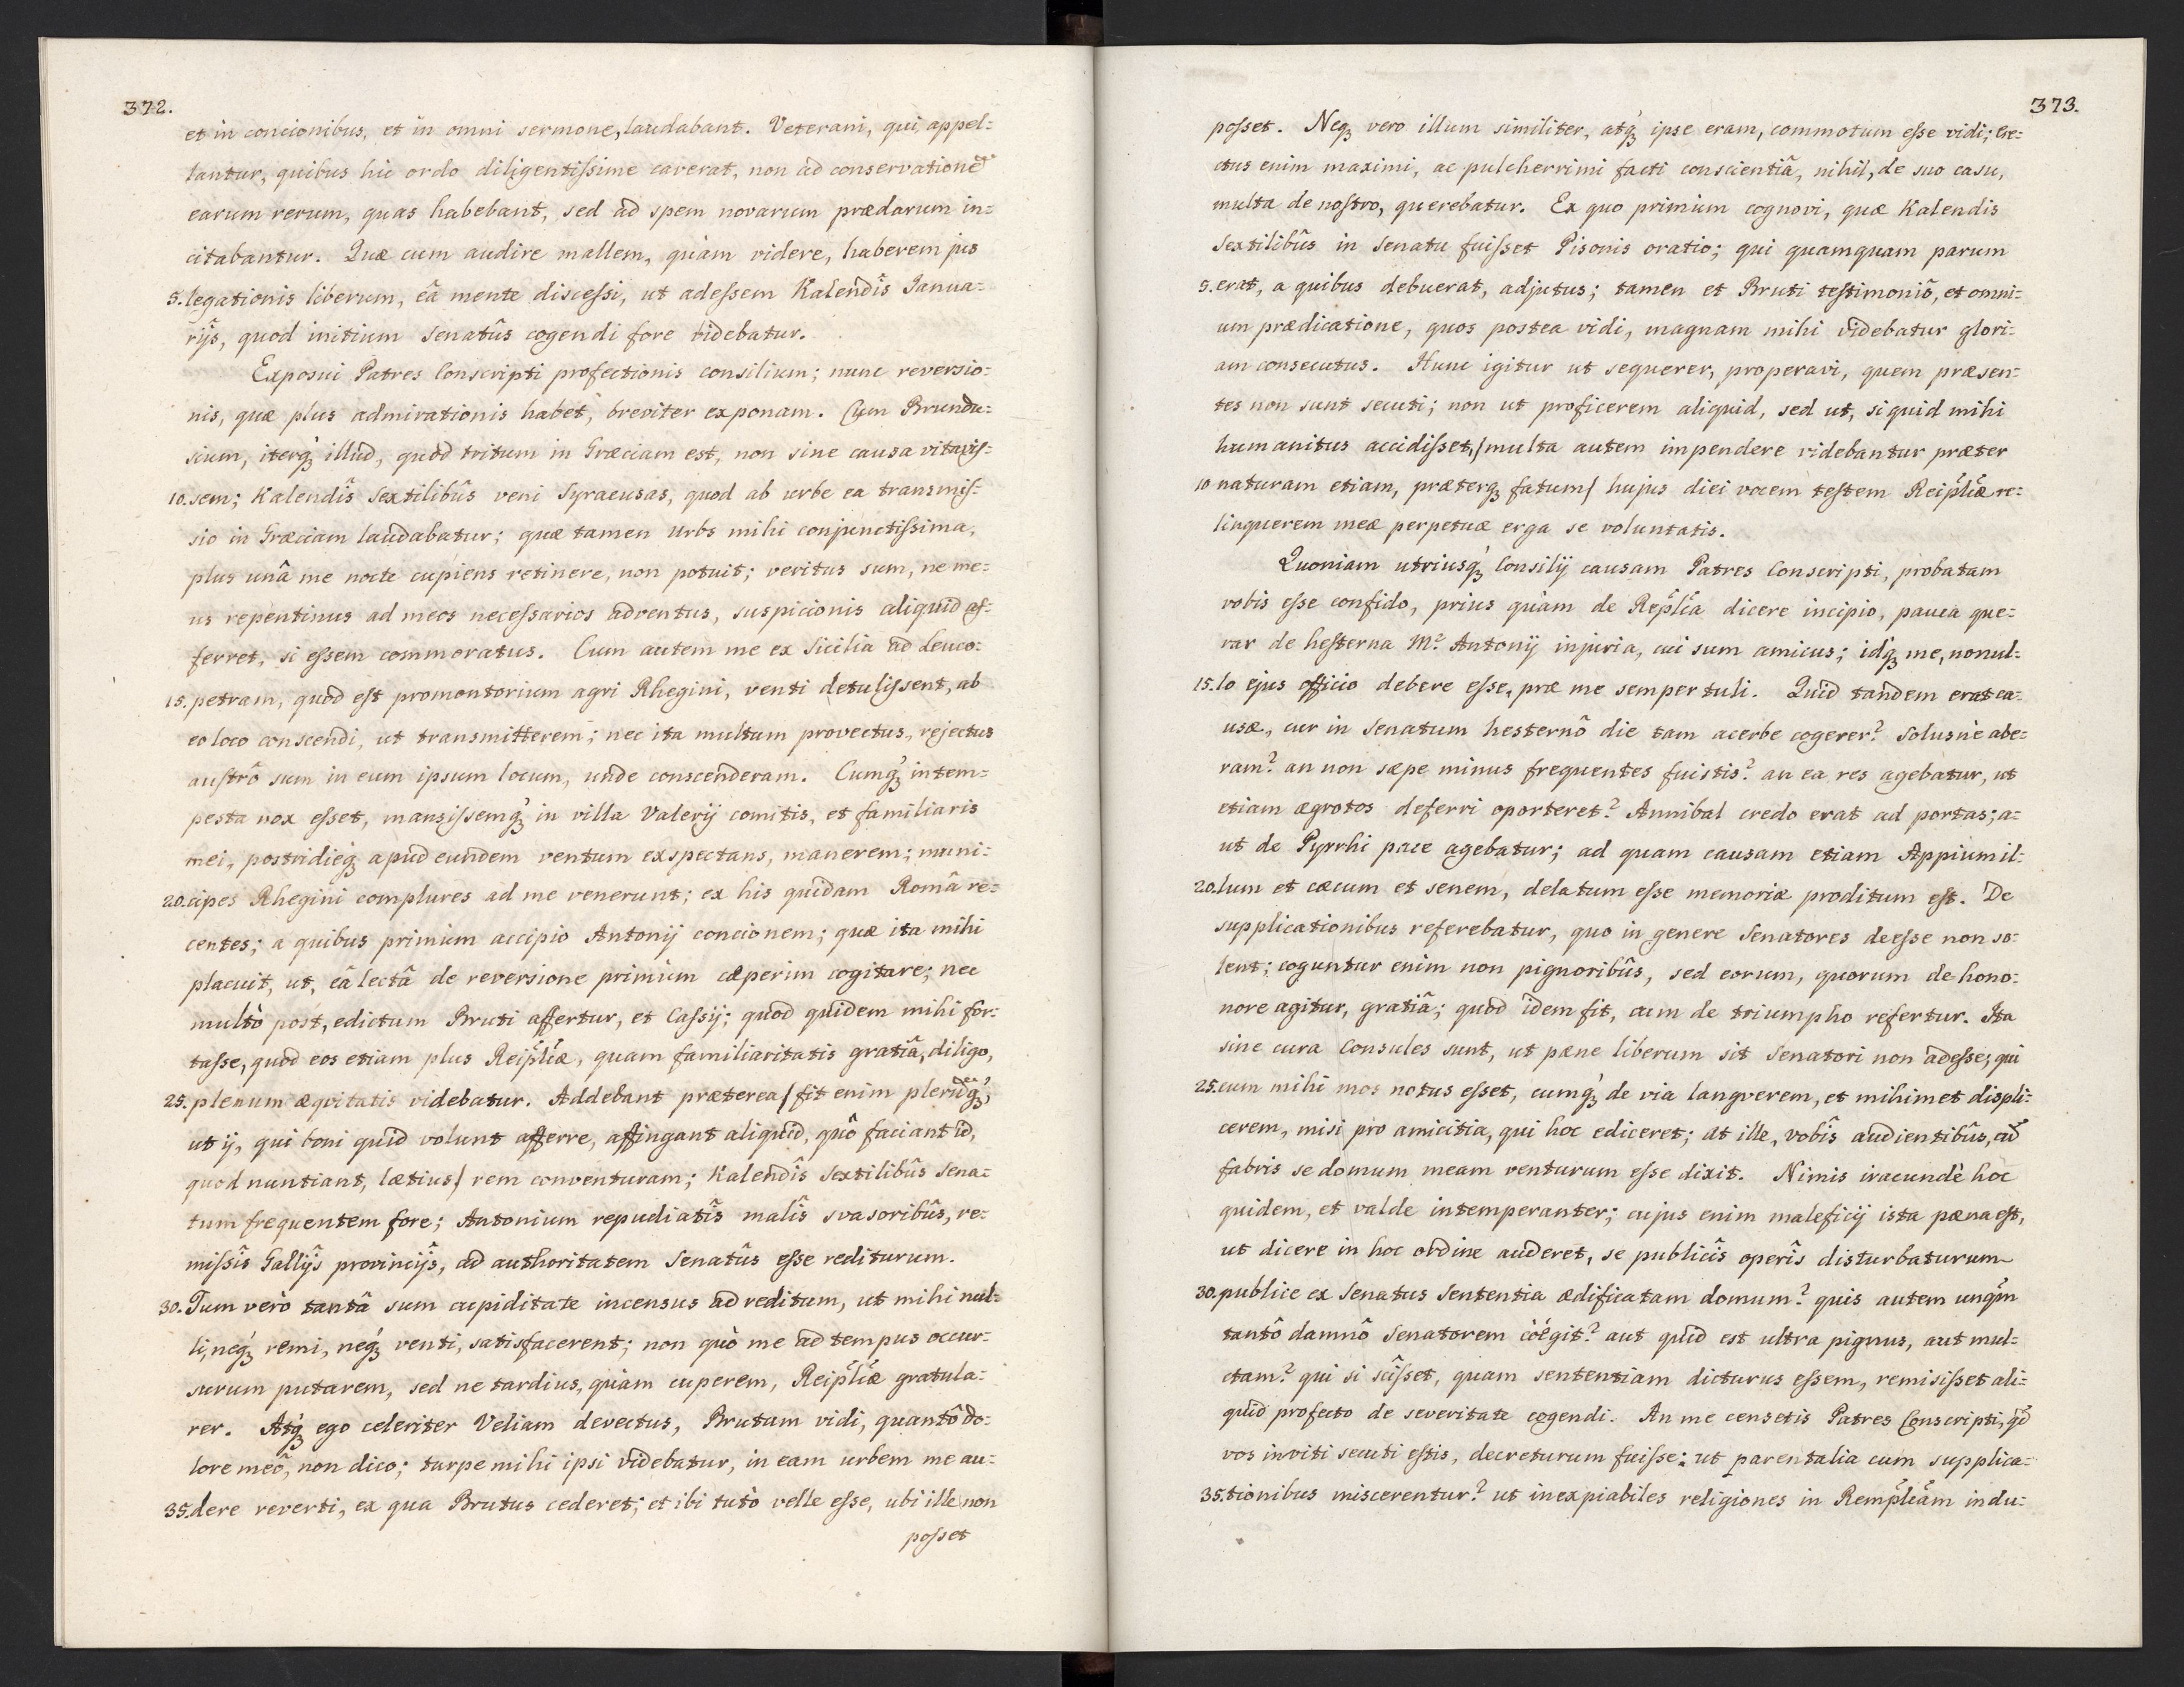 372.
et in concionibus, et in omni sermone, laudabant. Veterani, qui, appel=
lantur, quibus hic ordo diligentißime caverat, non ad conservationē
earum rerum, quas habebant, sed ad spem novarum prædarum in=
citabantur. Quæ cum audire mallem, quàm videre, haberem jus
5. legationis liberum, eâ mente discessi, ut adessem Kalendîs Janua=
rijs, quod initium Senatûs cogendi fore videbatur.
Exposui Patres Conscripti profectionis consilium; nunc reversio=
nis, quæ plus admirationis habet, breviter exponam. Cum Brundu=
sium, iterq́ꝫ illud, quod tritum in Græciam est, non sine causa vitaviſ=
10. sem; Kalendîs Sextilibûs veni Syracusas, quod ab urbe ea transmiſ=
sio in Græciam laudabatur; quæ tamen urbs mihi conjunctißima,
plus unâ me nocte cupiens retinere, non potuit; veritus sum, ne me=
us repentinus ad meos neceßarios adventus, suspicionis aliquid af=
ferret, si eßem commoratus. Cum autem me ex Sicilia ad Leuco=
15. petram, quod est promontorium agri Rhegini, venti detulissent, ab
eo loco conscendi, ut transmitterem; nec ita multum provectus, rejectus
austrô sum in eum ipsum locum, unde conscenderam. Cumq́ꝫ intem=
pesta nox esset, mansissemq́ꝫ in villa Valerij comitis, et familiaris
mei, postridieq́ꝫ apud eundem ventum exspectans, manerem; muni=
20. cipes Rhegini complures ad me venerunt; ex his quidam Româ re=
centes; a quibus primùm accipio Antonij concionem; quæ ita mihi
placuit, ut, eâ lectâ de reversione primùm cæperim cogitare; nec
multò post, edictum Bruti affertur, et Cassij; quod quidem mihi for=
tasse, quod eos etiam plus Reip̃licæ, quam familiaritatis gratiâ, diligo,
25. plenum æqvitatis videbatur. Addebant præterea / fit enim plerūq́ꝫ,
ut ij, qui boni quid volunt afferre, affingant aliquid, quô faciant id,
quod nuntiant, lætius / rem conventuram; Kalendîs Sextilibûs Sena=
tum frequentem fore; Antonium repudiatîs malîs svasoribûs, re=
mißîs Gallijs provincijs, ad authoritatem Senatûs esse rediturum.
30. Tum verò tantâ sum cupiditate incensus ad reditum, ut mihi nul=
li, neq́ꝫ remi, neq́ꝫ venti, satisfacerent; non quò me ad tempus occur=
surum putarem, sed ne tardius, quàm cuperem, Reip̃licæ gratula=
rer. Atq́ꝫ ego celeriter Veliam devectus, Brutum vidi, quantô do=
lore meô, non dico; turpe mihi ipsi videbatur, in eam urbem me au=
35. dere reverti, ex qua Brutus cederet; et ibi tutò velle esse, ubi ille non
posset
373.
posset. Neqꝫ vero illum similiter, atq́ꝫ ipse eram, commotum esse vidi; Ere=
ctus enim maximi, ac pulcherrimi facti conscientiâ, nihil, de suo casu,
multa de nostro, querebatur. Ex quo primùm cognovi, quæ Kalendis
Sextilibûs in Senatu fuisset Pisonis oratio; qui quamquam parum
5. erat, a quibus debuerat, adjutus; tamen et Bruti testimoniô, et omni=
um prædicatione, quos postea vidi, magnam mihi videbatur glori=
am consecutus. Hunc igitur ut sequerer, properavi, quem præsen=
tes non sunt secuti; non ut proficerem aliquid, sed ut, si quid mihi
humanitus accidisset, / multa autem impendere videbantur præter
10 naturam etiam, præterqꝫ fatum / hujus diei vocem testem Reip̃licæ re=
linquerem meæ perpetuæ erga se voluntatis.
Quoniam utriusq́ꝫ Consilij causam Patres Conscripti, probatam
vobis esse confido, prius quàm de Rep̃lica dicere incipio, pauca que=
rar de hesterna M? Antonij injuria, cui sum amicus; idq́ꝫ me, nonul=
15. lo ejus officio debere esse, præ me semper tuli. Quid tandem erat ca=
usæ, cur in Senatum hesternô die tam acerbe cogerer? Solusnè abe=
ram? an non sæpe minus frequentes fuistis? an ea res agebatur, ut
etiam ægrotos deferri oporteret? Annibal credo erat ad portas; a=
ut de Pyrrhi pace agebatur; ad quam causam etiam Appium il=
20. lum et cæcum et senem, delatum esse memoriæ proditum est. De
supplicationibus referebatur, quo in genere Senatores deesse non so=
lent; coguntur enim non pignoribûs, sed eorum, quorum de hono=
nore agitur, gratiâ; quod idem fit, cum de triumpho refertur. Ita
sine cura Consules sunt, ut pæne liberum sit Senatori non adesse; qui
25. cum mihi mos notus esset, cumq́ꝫ de via langverem, et mihimet displi=
cerem, misi pro amicitia, qui hoc ediceret; At ille, vobîs audientibûs, cū
fabris se domum meam venturum esse dixit. Nimis iracundè hoc
quidem, et valde intemperanter; cujus enim maleficij ista pæna est,
ut dicere in hoc ordine auderet, se publicîs operîs disturbaturum
30. publice ex Senatus Sententia ædificatam domum? quis autem unq̃m
tantô damnô Senatorem coëgit? aut quid est ultra pignus, aut mul=
ctam? qui si scîsset, quam sententiam dicturus essem, remisisset ali=
quid profecto de severitate cogendi. An me censetis Patres Conscripti, qd̃
vos inviti secuti estis, decreturum fuisse; ut parentalia cum supplica=
35. tionibus miscerentur? ut inexpiabiles religiones in Remp̃licam indu=